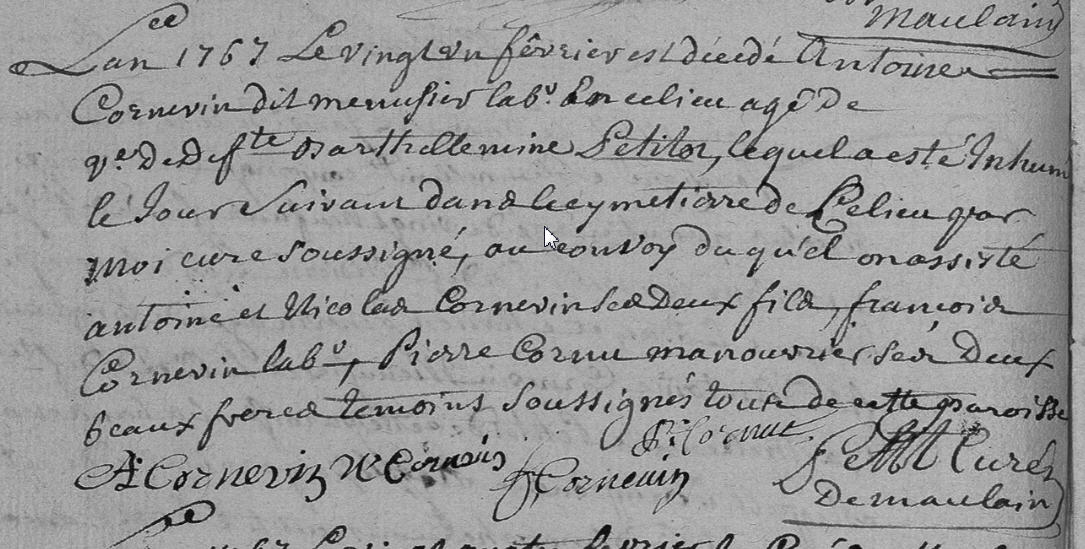 maulain
Lan 1767 Le vingt un fêvrier est décedé Antoine
Cornevin dit menusier labr En ce lieu agé de
ve de defte Barthellemine Petitot, lequel a esté Inhumé
le Jour Suivant dans le cymetierre de Ce lieu par
moi curé soussigné, au convoy duquel on assisté
antoine et Nicolas Cornevin ses deux fils, françois
Cornevin labr, Pierre Cornu manouvrier ses Deux
beaux freres temoins soussignés tous de cette paroisse
A Cornevin N Cornevin F Cornevin P Cornut Curé
De maulain